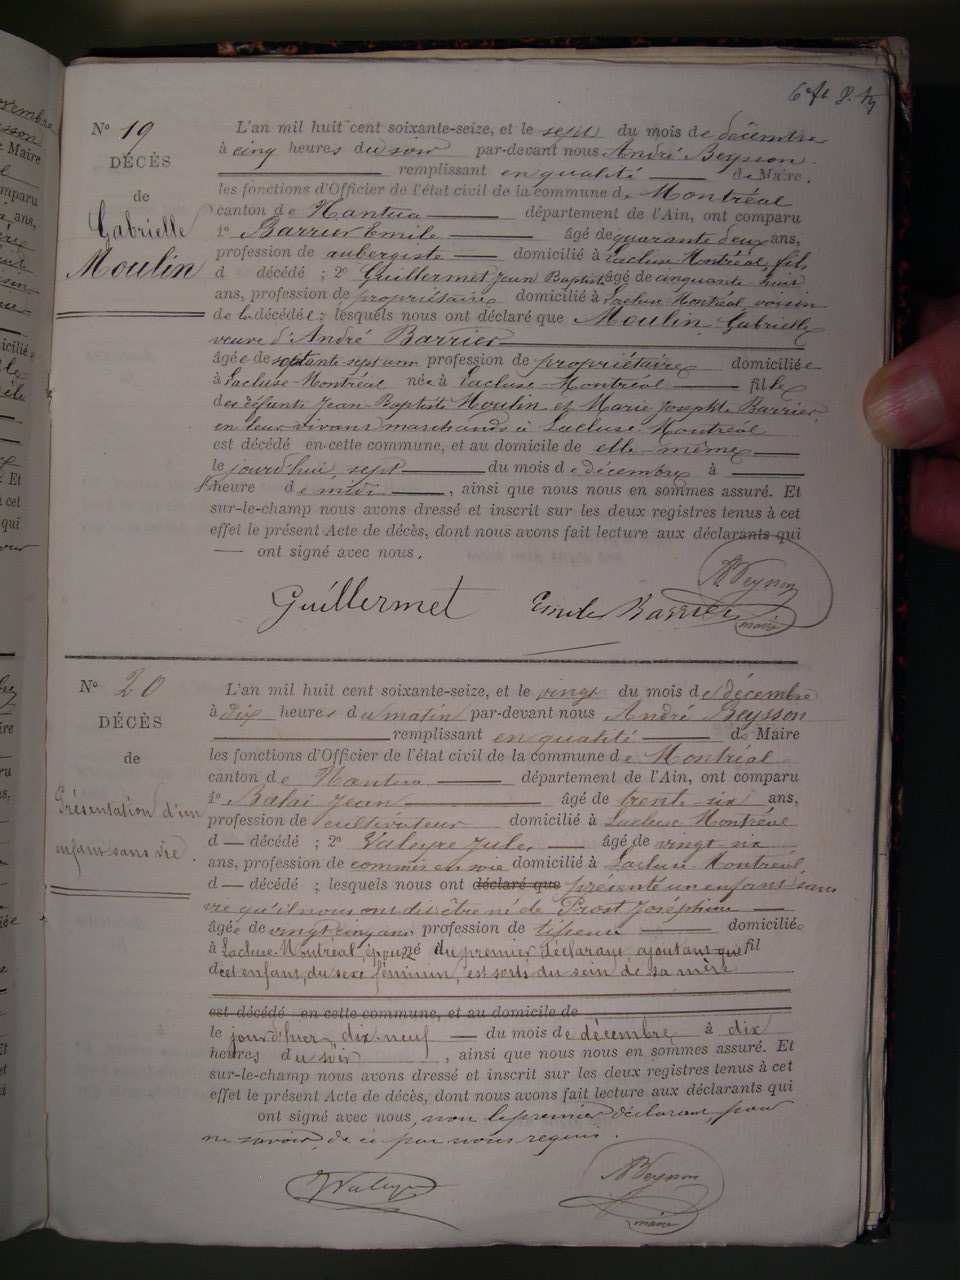 N° 19
DÉCÈS
de
Gabrielle
Moulin
L'an mil huit cent soixante-seize, et le sept du mois de décembre
à cinq heures du soir par-devant nous André Beysson
remplissant en qualité de Maire.
les fonctions d'Officier de l'état civil de la commune de Montréal
canton de Nantua département de l'Ain, ont comparu
1° Barrier Emile âgé de quarante deux ans,
profession de aubergiste domicilié à Lacluse-Montréal, fils
d décédé ; 2° Guillermet Jean Baptiste âgé de cinquante huit
ans, profession de propriétaire domicilié à Lacluse Montréal voisin
de la décédée ; lesquels nous ont déclaré que Moulin Gabrielle
veuve d'André Barrier
âgée de septante sept ans profession de propriétaire domiciliée
à Lacluse-Montréal née à Lacluse-Montréal fille
des défunts Jean Baptiste Moulin et Marie Josephte Barrier
en leur vivant marchands à Lacluse-Montréal
est décédé en cette commune, et au domicile de elle-même
le jourd'hui sept du mois de décembre à
l'heure de midi, ainsi que nous nous en sommes assuré. Et
sur-le-champ nous avons dressé et inscrit sur les deux registres tenus à cet
effet le présent Acte de décès, dont nous avons fait lecture aux déclarants qui
ont signé avec nous.
Guillermet Emile Barrier Beysson
maire
N° 20
DÉCÈS
de
Présentation d'un
enfant sans vie.
L'an mil huit cent soixante-seize, et le vingt du mois de décembre
à dix heures du matin par-devant nous André Beysson
remplissant en qualité de Maire
les fonctions d'Officier de l'état civil de la commune de Montréal
canton de Nantua département de l'Ain, ont comparu
1° Jean âgé de trente-six ans,
profession de cultivateur domicilié à Lacluse Montréal
d décédé ; 2° Jules âgé de vingt six
ans, profession de commis en domicilié à Lacluse Montréal
d décédé ; lesquels nous ont déclaré que présenté un enfant sans
vie qu'il nous ont dit être né de Prost Joséphine
âgée de vingt cinq ans profession de domiciliée
à Lacluse-Montréal, épouse du premier déclarant, ajoutant que fil
d cet enfant, du sexe féminin, est sorti du sein de sa mère
est décédé en cette commune, et au domicile de
le jour d'hier dix neuf du mois de décembre à dix
heures du soir, ainsi que nous nous en sommes assuré. Et
sur-le-champ nous avons dressé et inscrit sur les deux registres tenus à cet
effet le présent Acte de décès, dont nous avons fait lecture aux déclarants qui
ont signé avec nous, non le premier déclarant, pour
ne savoir, de ce par nous requis.
Beysson
maire